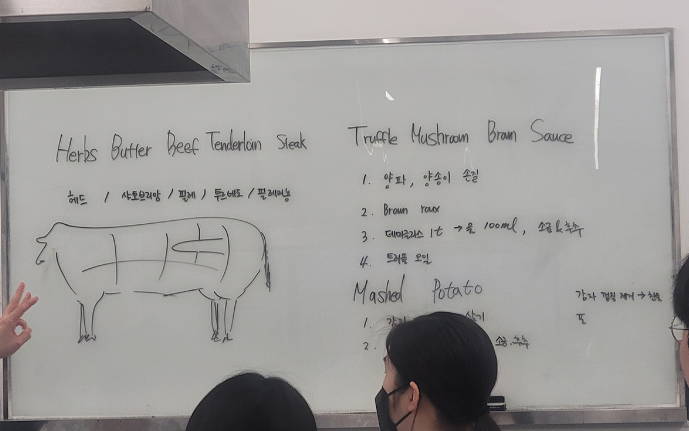 Herbs Butter Beef Tenderloin Steak
헤드 / 샤또브리앙 / 필레 / 투르네도 / 필레미뇽
Truffle Mushroom Brown Sauce
1. 양파, 양송이 손질
2. Brown roux
3. 데미글라스 1t → 물 100ml, 소금&후추
4. 트러플 오일
Mashed Potato
1. 감자 삶기
2. 소금, 후추
감자 껍질 제거 →